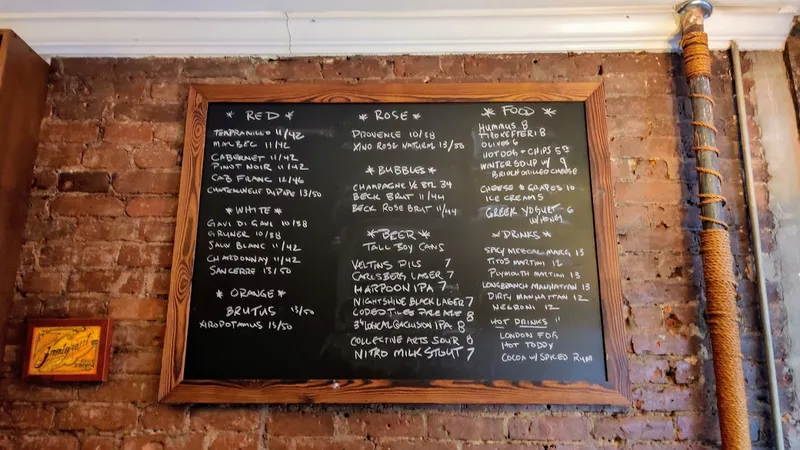 * RED *
TEMPRANILLO 11/42
MALBEC 11/42
CABERNET 11/42
PINOT NOIR 11/42
CAB FRANC 12/46
CHATEAUNEUF DU PAPE 13/50
* WHITE *
GAVI DI GAVI 10/38
GRUNER 10/38
SAUV BLANC 11/42
CHARDONNAY 11/42
SANCERRE 13/50
* ORANGE *
BRUTUS 13/50
XIROPOTAMUS 13/50
* ROSE *
PROVENCE 10/38
XINO ROSE NATURAL 13/50
* BUBBLES *
CHAMPAGNE ½ BTL 34
BECK BRUT 11/44
BECK ROSE BRUT 11/44
* BEER *
TALL BOY CANS
VELTINS PILS 7
CARLSBERG LAGER 7
HARPOON IPA 7
NIGHTSHINE BLACK LAGER 7
CODED TILES PALE ALE 8
LOCAL IPA 8
COLLECTIVE ARTS SOUR 8
NITRO MILK STOUT 7
* FOOD *
HUMMUS 8
TIROKEFTERI 8
OLIVES 6
HOT DOG + CHIPS 5
WINTER SOUP W/ 9
GRILLED CHEESE
CHEESE & GRAPES 10
ICE CREAM 5
GREEK YOGURT 6
W/ HONEY
* DRINKS *
SPICY MEZCAL MARG 13
TITOS MARTINI 12
PLYMOUTH MARTINI 13
LONGBRANCH MANHATTAN 13
DIRTY MANHATTAN 12
NEGRONI 12
HOT DRINKS 11
LONDON FOG
HOT TODDY
COCOA W/ SPICED RUM